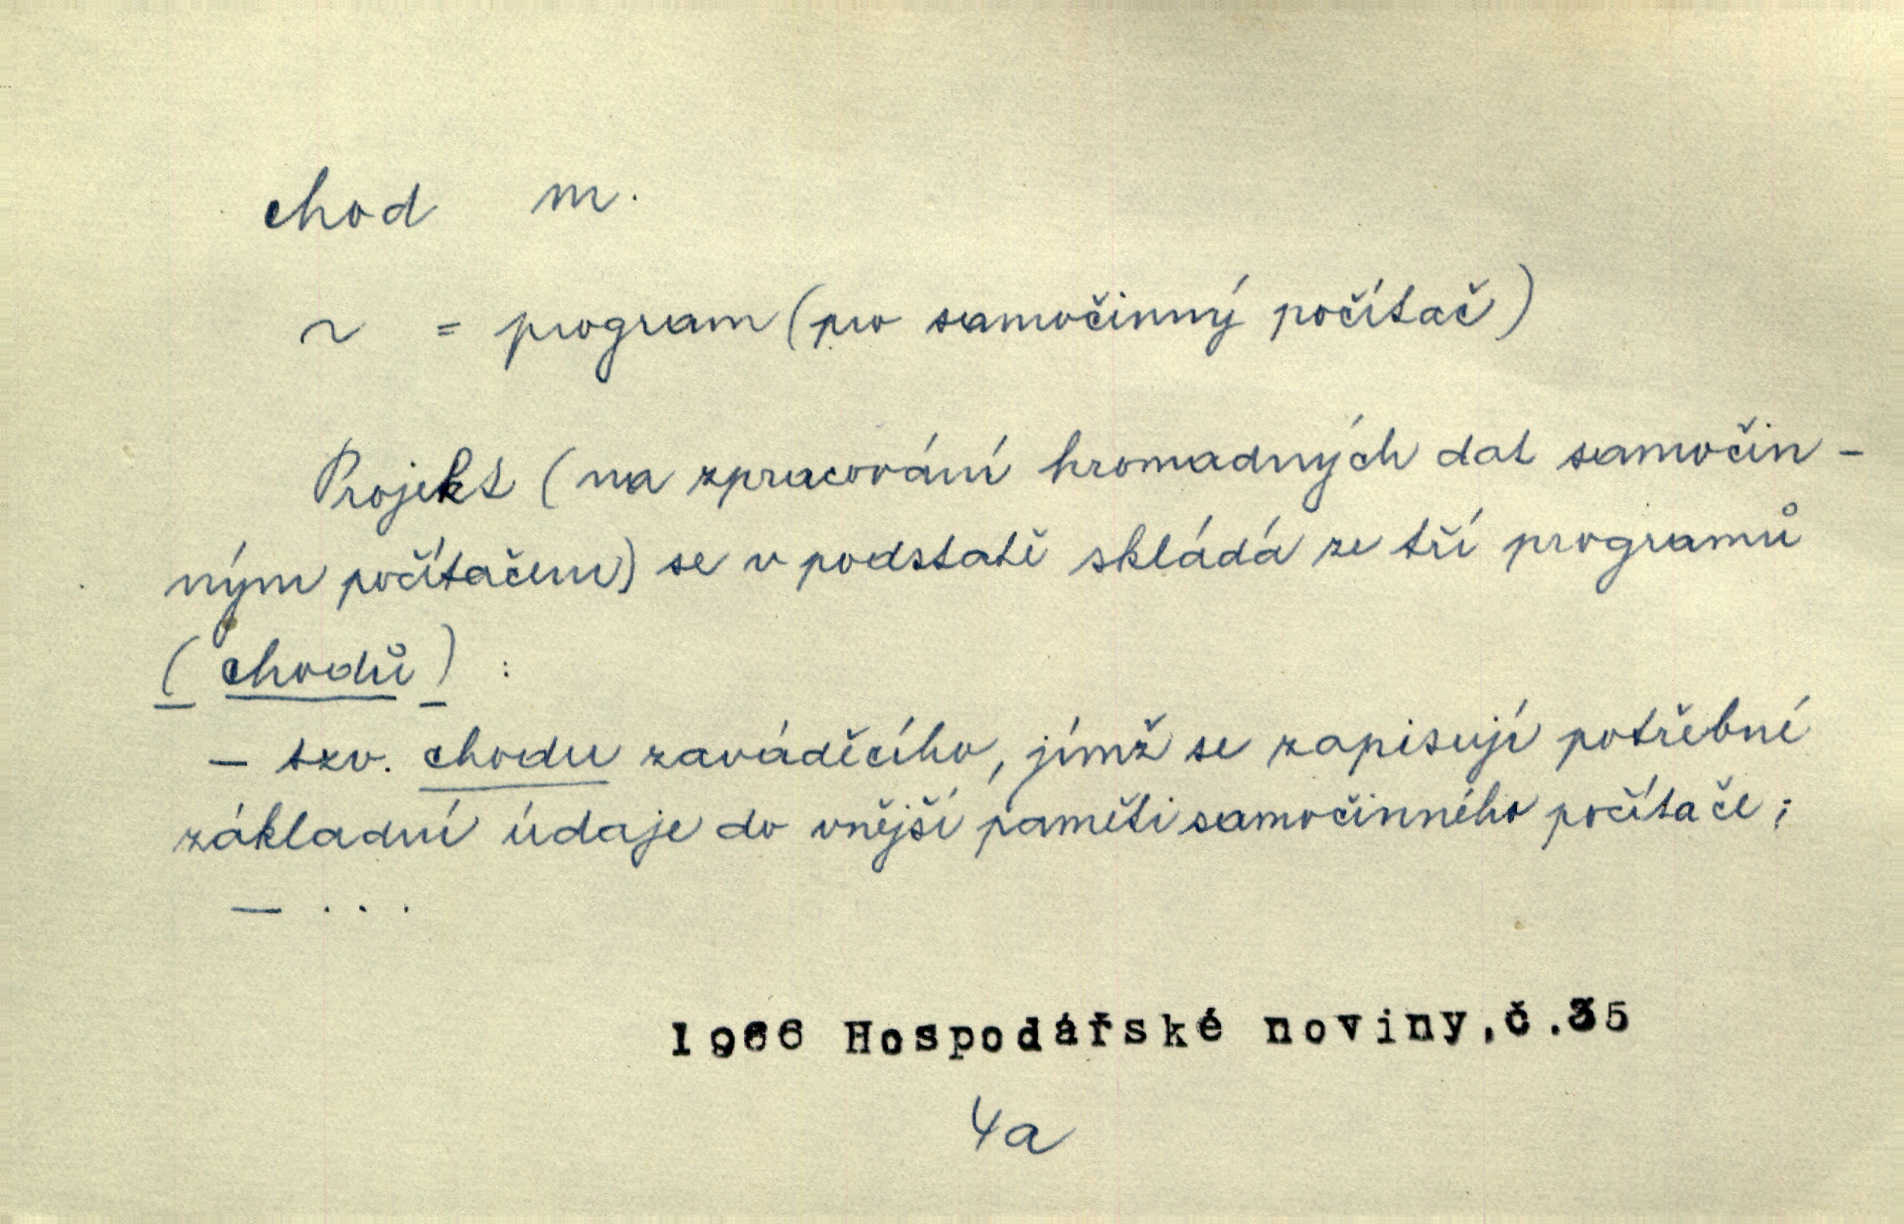 chod m.
~ = program (pro samočinný počítač)
Projekt (na zpracování hromadných dat samočin-
ným počítačem) se v podstatě skládá ze tří programů
(chodů) :
– tzv. chodu zaváděcího, jímž se zapisují potřebné
základní údaje do vnější paměti samočinného počítače;
– ...
1966 Hospodářské noviny,č.35
4a